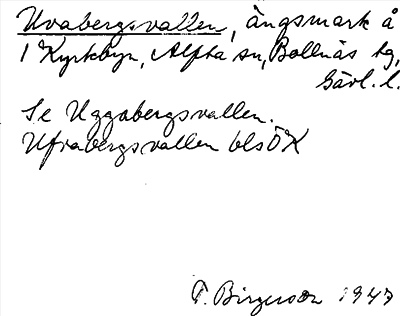 Uvabergsvallen, ängsmark å
1 Kyrkbyn, Alfta sn, Bollnäs tg,
Gävl. l.
Se Uggabergsvallen.
Ufvabergsvallen blsÖK
F. Birgerson 1947